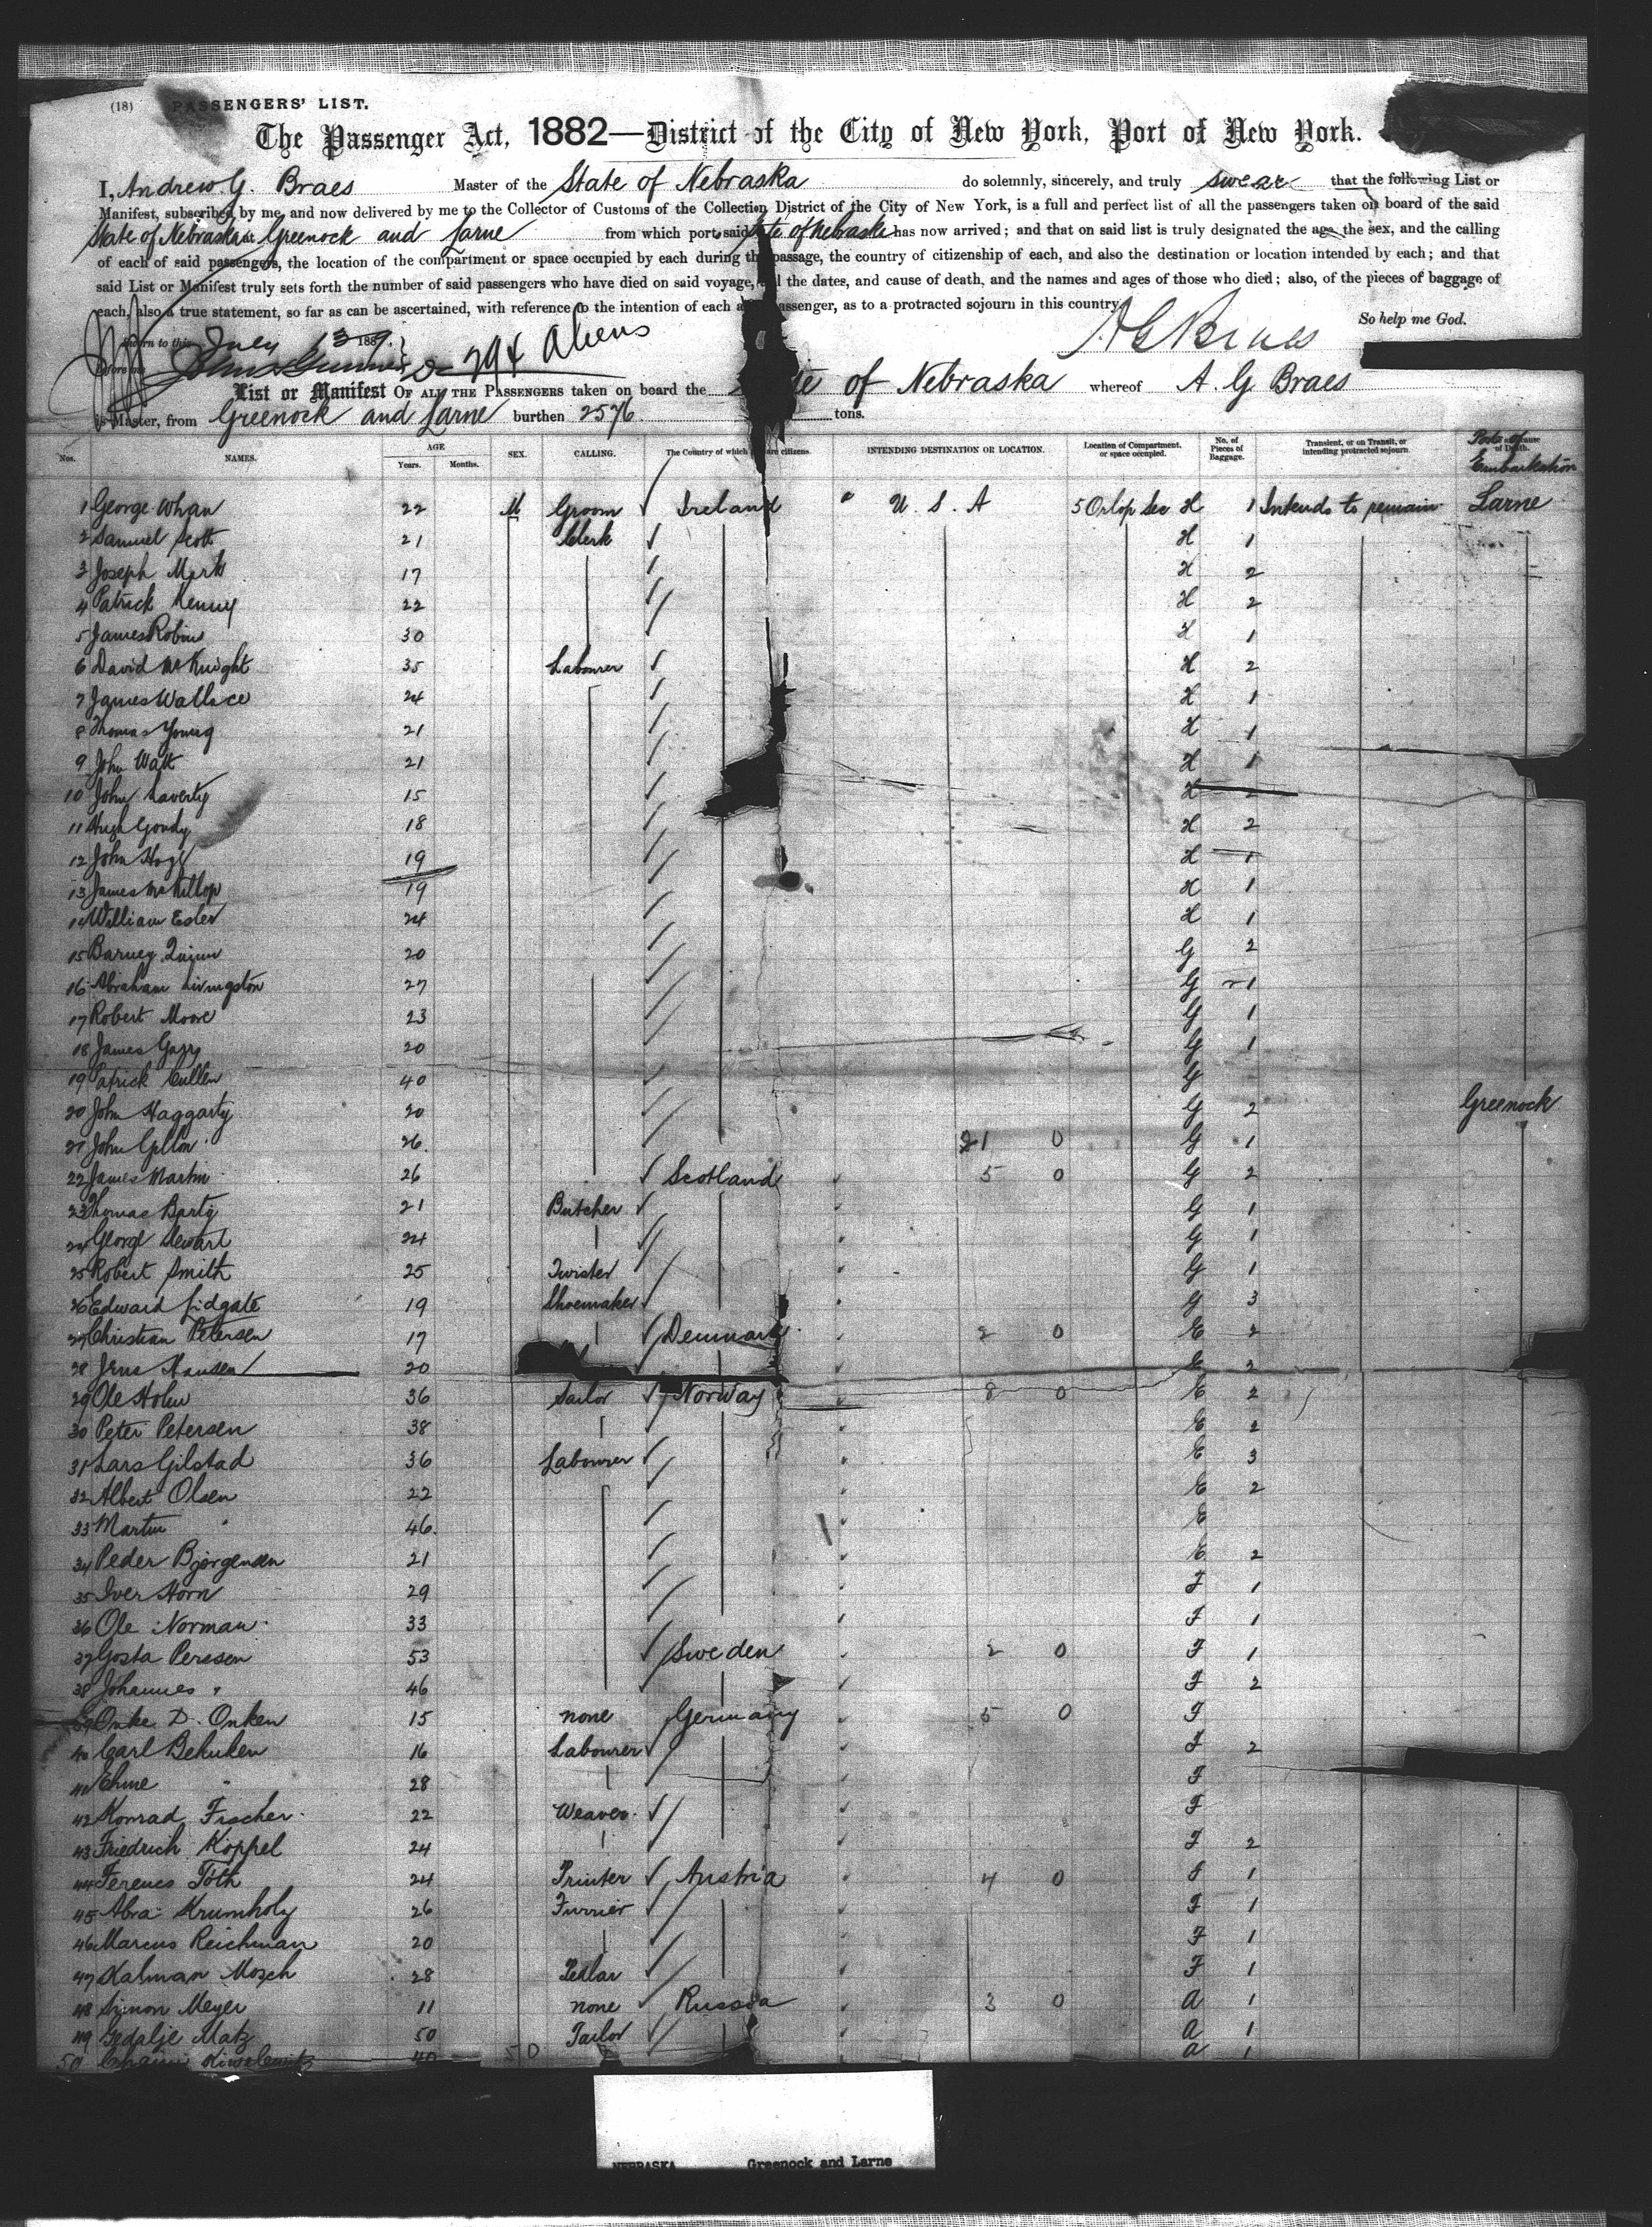 (18) PASSENGERS' LIST.
The Passenger Act, 1882—District of the City of New York, Port of New York.
I, Andrew G. Braes Master of the State of Nebraska do solemnly, sincerely, and truly swear that the following List or
Manifest, subscribed by me, and now delivered by me to the Collector of Customs of the Collection District of the City of New York, is a full and perfect list of all the passengers taken on board of the said
State of Nebraska at Greenock and Larne from which port said State of Nebraska has now arrived; and that on said list is truly designated the age, the sex, and the calling
of each of said passengers, the location of the compartment or space occupied by each during the passage, the country of citizenship of each, and also the destination or location intended by each; and that
said List or Manifest truly sets forth the number of said passengers who have died on said voyage, the dates, and cause of death, and the names and ages of those who died; also, of the pieces of baggage of
each, also a true statement, so far as can be ascertained, with reference to the intention of each passenger, as to a protracted sojourn in this country.
So help me God.
Sworn to this July 13 1889. A G Braes
before me 294 Aliens
List or Manifest OF ALL THE PASSENGERS taken on board the State of Nebraska whereof A. G Braes
is Master, from Greenock and Larne burthen 2576 tons.
Nos. NAMES. AGE Years. Months. SEX. CALLING. The Country of which they are citizens. INTENDING DESTINATION OR LOCATION. Location of Compartment, or space occupied. No. of Pieces of Baggage. Transient, or on Transit, or intending protracted sojourn. Port of Embarkation
1 George Whan 22 M Groom Ireland U. S. A 5 Orlop Sec H 1 Intends to remain Larne
2 Samuel Scott 21 Clerk H 1
3 Joseph Marks 17 H 2
4 Patrick Kenny 22 H 2
5 James Robins 30 H 1
6 David McKnight 35 Labourer H 2
7 James Wallace 24 H 1
8 Thomas Young 21 H 1
9 John Watt 21 H 1
10 John Laverty 15 H 2
11 Hugh Goudy 18 H 2
12 John Hogg 19 H 1
13 James McKillop 19 H 1
14 William Esler 24 H 1
15 Barney Quinn 20 G 2
16 Abraham Livingston 27 G 1
17 Robert Moore 23 G 1
18 James Gary 20 G 1
19 Patrick Cullen 40 G
20 John Haggarty 20 G 2 Greenock
21 John Gillon 26 21 0 G 1
22 James Martin 26 Scotland 5 0 G 2
23 Thomas Barty 21 Butcher G 1
24 George Stewart 24 G 1
25 Robert Smith 25 Twister G 1
26 Edward Lidgate 19 Shoemaker G 3
27 Christian Petersen 17 Denmark 2 0 E 2
28 Jens Hansen 20 E 2
29 Ole Holm 36 Sailor Norway 8 0 E 2
30 Peter Petersen 38 E 2
31 Lars Gilstad 36 Labourer E 3
32 Albert Olsen 22 E 2
33 Martin " 46 E
34 Peder Bjorgensen 21 E 2
35 Iver Horn 29 F 1
36 Ole Norman 33 F 1
37 Gosta Perssen 53 Sweden 2 0 F 1
38 Johannes " 46 F 2
39 Onke D. Onken 15 none Germany 5 0 F
40 Carl Behnken 16 Labourer F 2
41 Ehme " 28 F
42 Konrad Fischer 22 Weaver F
43 Friedrich Koppel 24 F 2
44 Ferencs Tóth 24 Printer Austria 4 0 F 1
45 Abra Krumholz 26 Furrier F 1
46 Marcus Reichman 20 F 1
47 Kalman Mosch 28 Pedlar F 1
48 Simon Meyer 11 none Russia 3 0 A 1
49 Gedalje Matz 50 Tailor A 1
50 Chaim 40 50 A 1
NEBRASKA Greenock and Larne